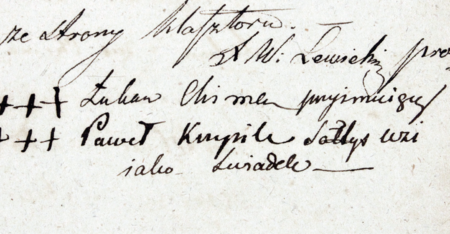 ze strony Klasztoru.
X W: Lewicki pro
+++ Łukan Chimen przyimuiący
+++ Paweł Krupik Sołtys wzi
iako Swiadek